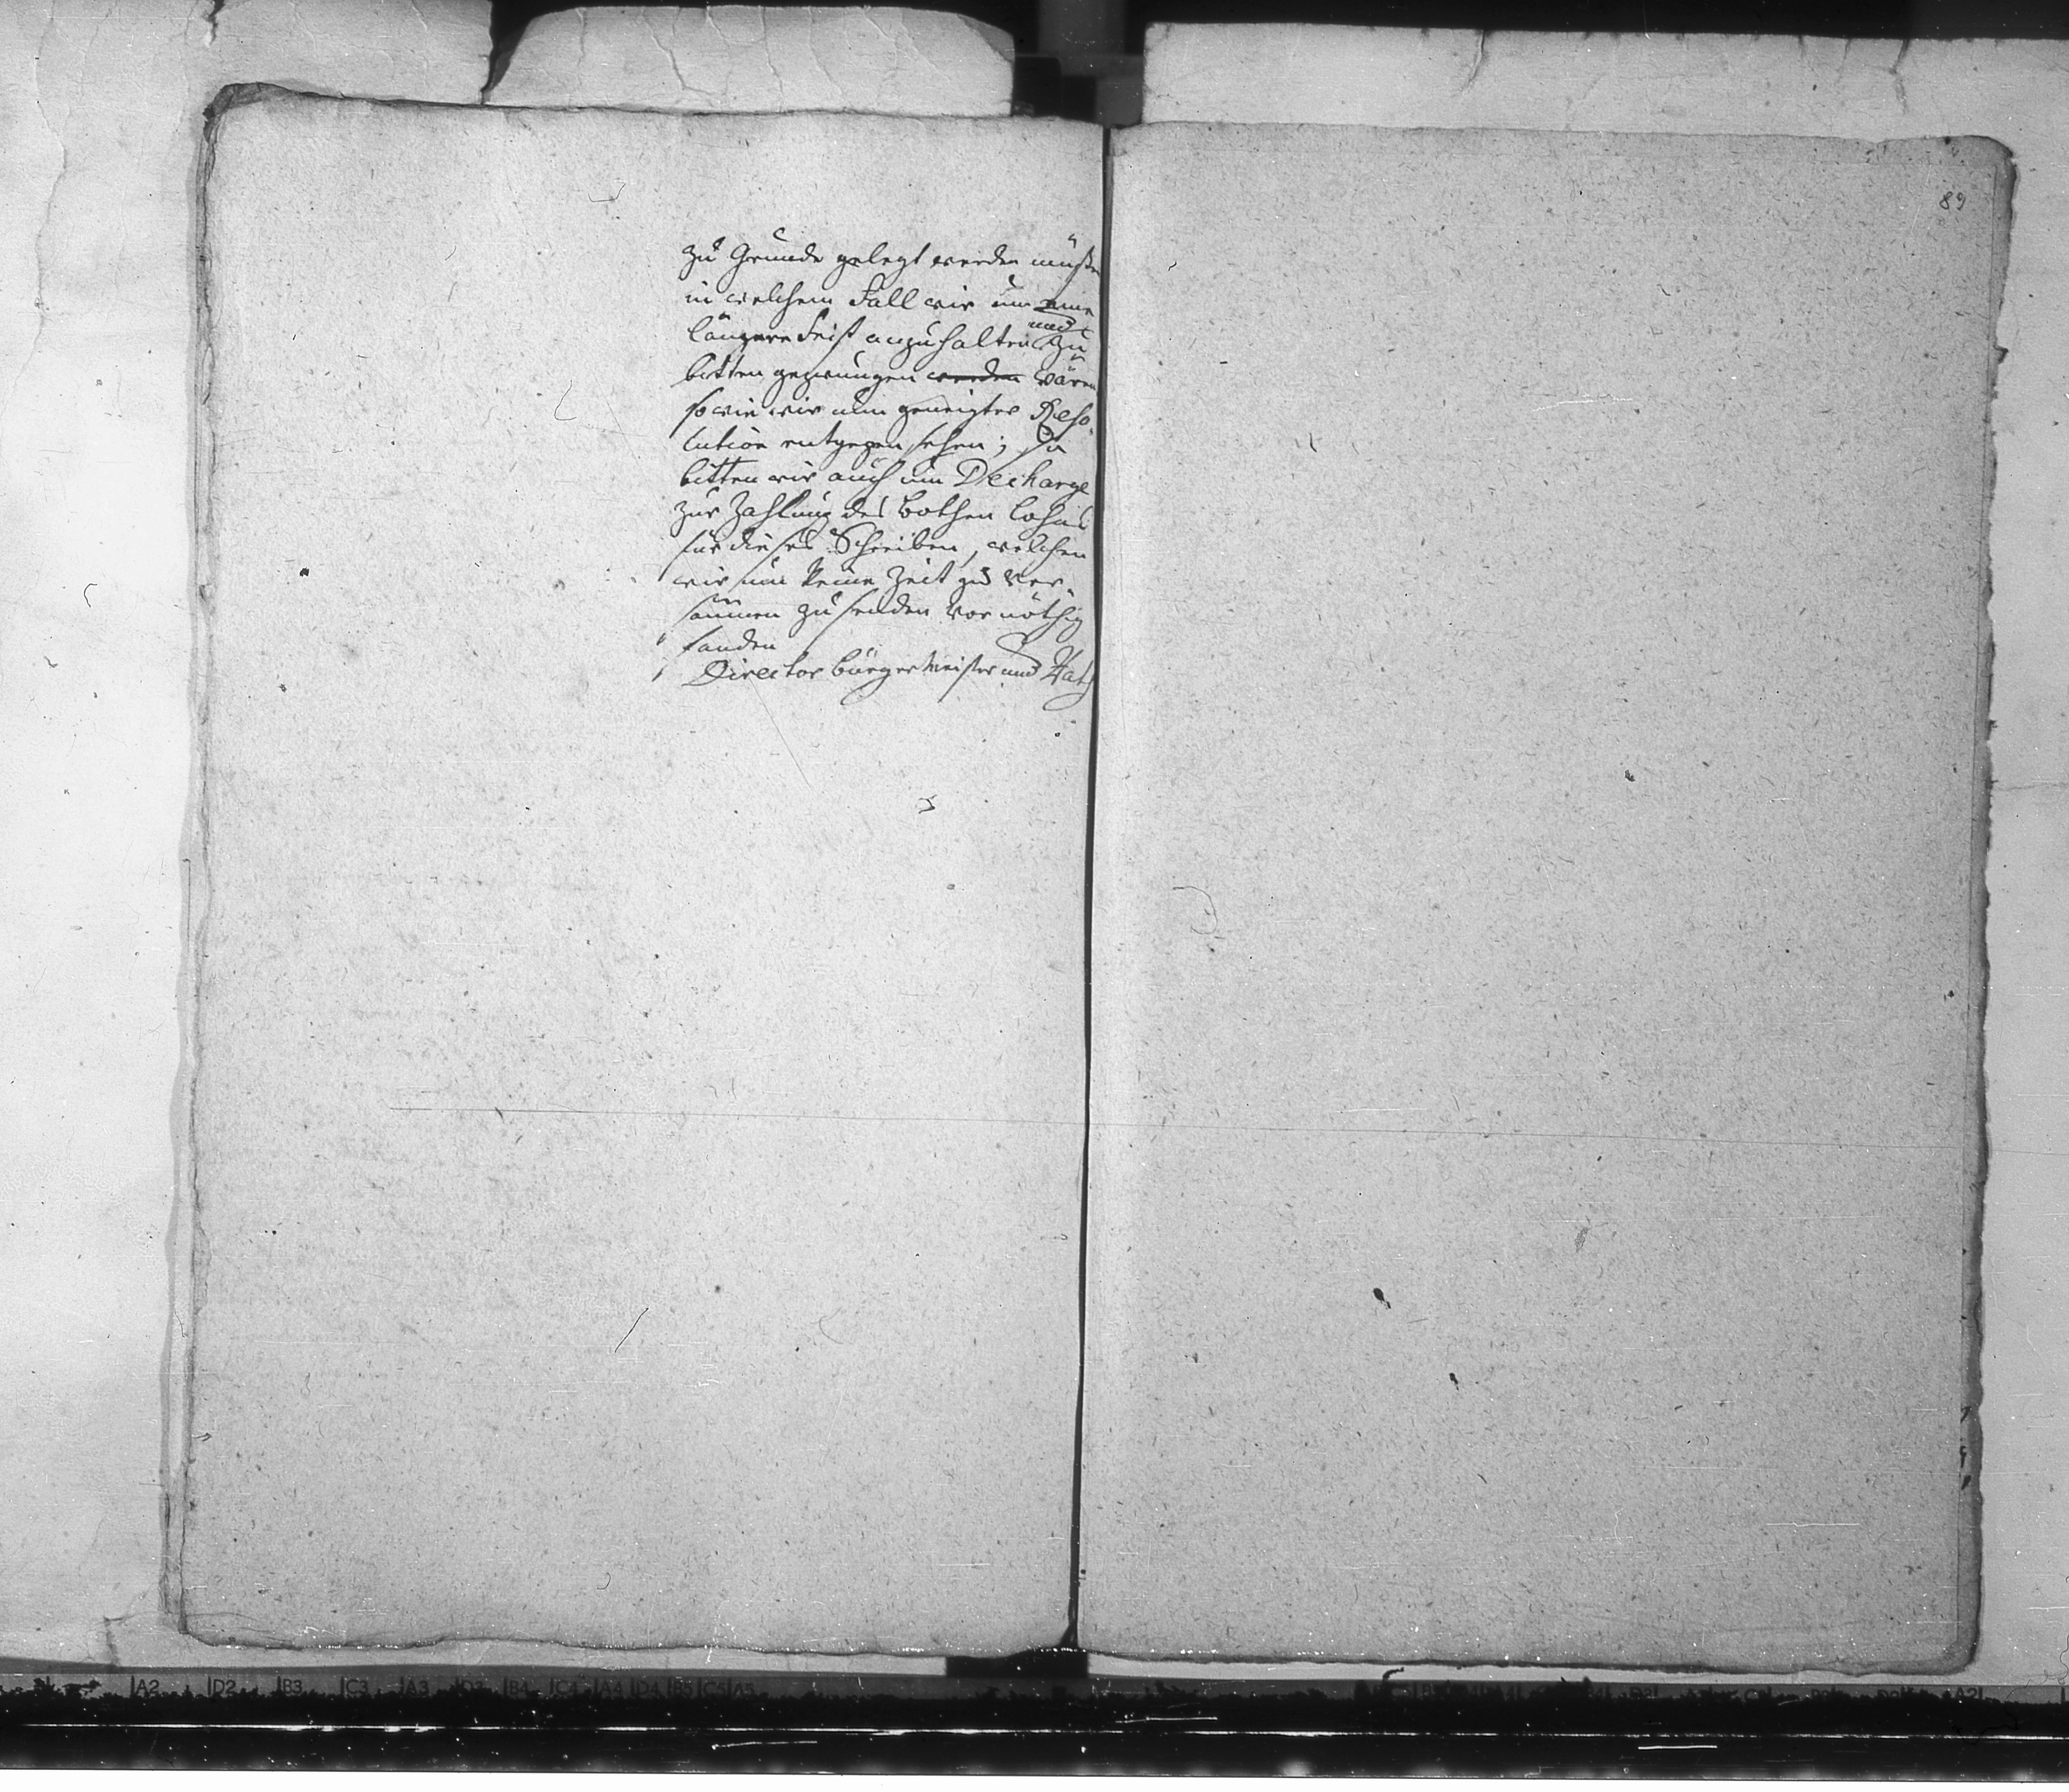 zu Grunde gelegt werden müßte
in welchem Fall wir um eine
längere Frist anzuhalten und zu
bitten gezwungen werden wären
so wie wir nun geneigter Reso-
lution entgegen sehen; So
bitten wir auch um Decharge
zur Zahlung des Bothen Lohns
für dieses Schreiben, welchen
wir um keine Zeit zu ver-
säumen zu senden vor nöthig
fanden
Director Bürgermeister und Rath
89